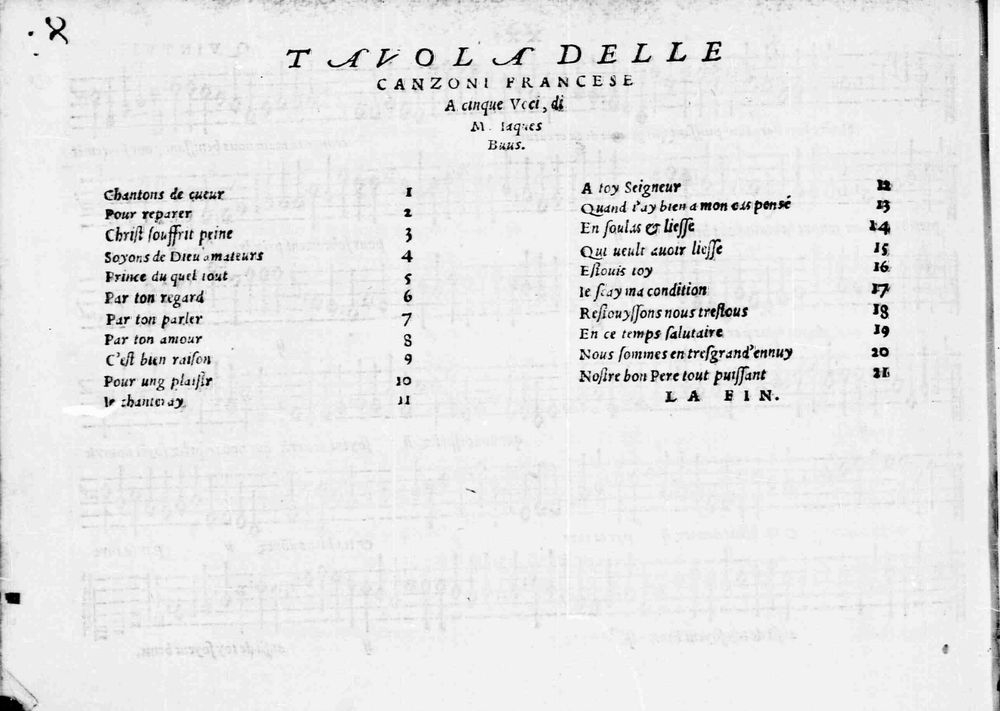 TAVOLA DELLE
CANZONI FRANCESE
A cinque Voci, di
M. Iaques
Buus.
Chantons de cueur 1
Pour reparer 2
Christ souffrit peine 3
Soyons de Dieu amateurs 4
Prince du quel tout 5
Par ton regard 6
Par ton parler 7
Par ton amour 8
C'est bien raison 9
Pour ung plaisir 10
Ie chanteray 11
A toy Seigneur 12
Quand i'ay bien a mon cas pensé 13
En soulas & liesse 14
Qui ueult auoir liesse 15
Esiouis toy 16
Ie scay ma condition 17
Resiouyssons nous trestous 18
En ce temps salutaire 19
Nous sommes en tresgrand'ennuy 20
Nostre bon Pere tout puissant 21
LA FIN.